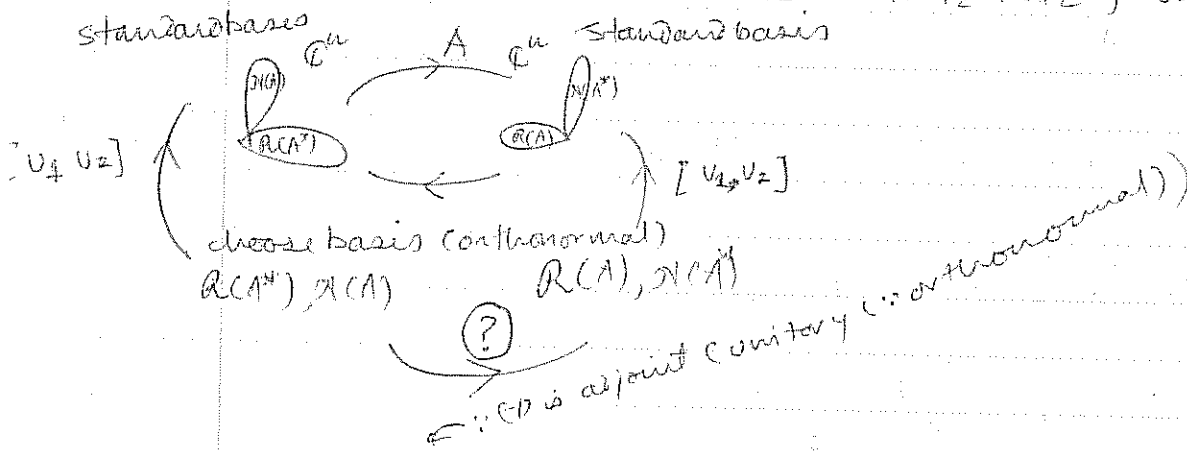 standard bases ℂⁿ A ℂⁿ standard basis
N(A) N(A*)
R(A*) R(A)
[U₁ U₂] [V₁, V₂]
choose basis (orthonormal)
R(A*), N(A) R(A), N(A*)
?
← ∵ (-1) is adjoint (unitary (∵ orthonormal))